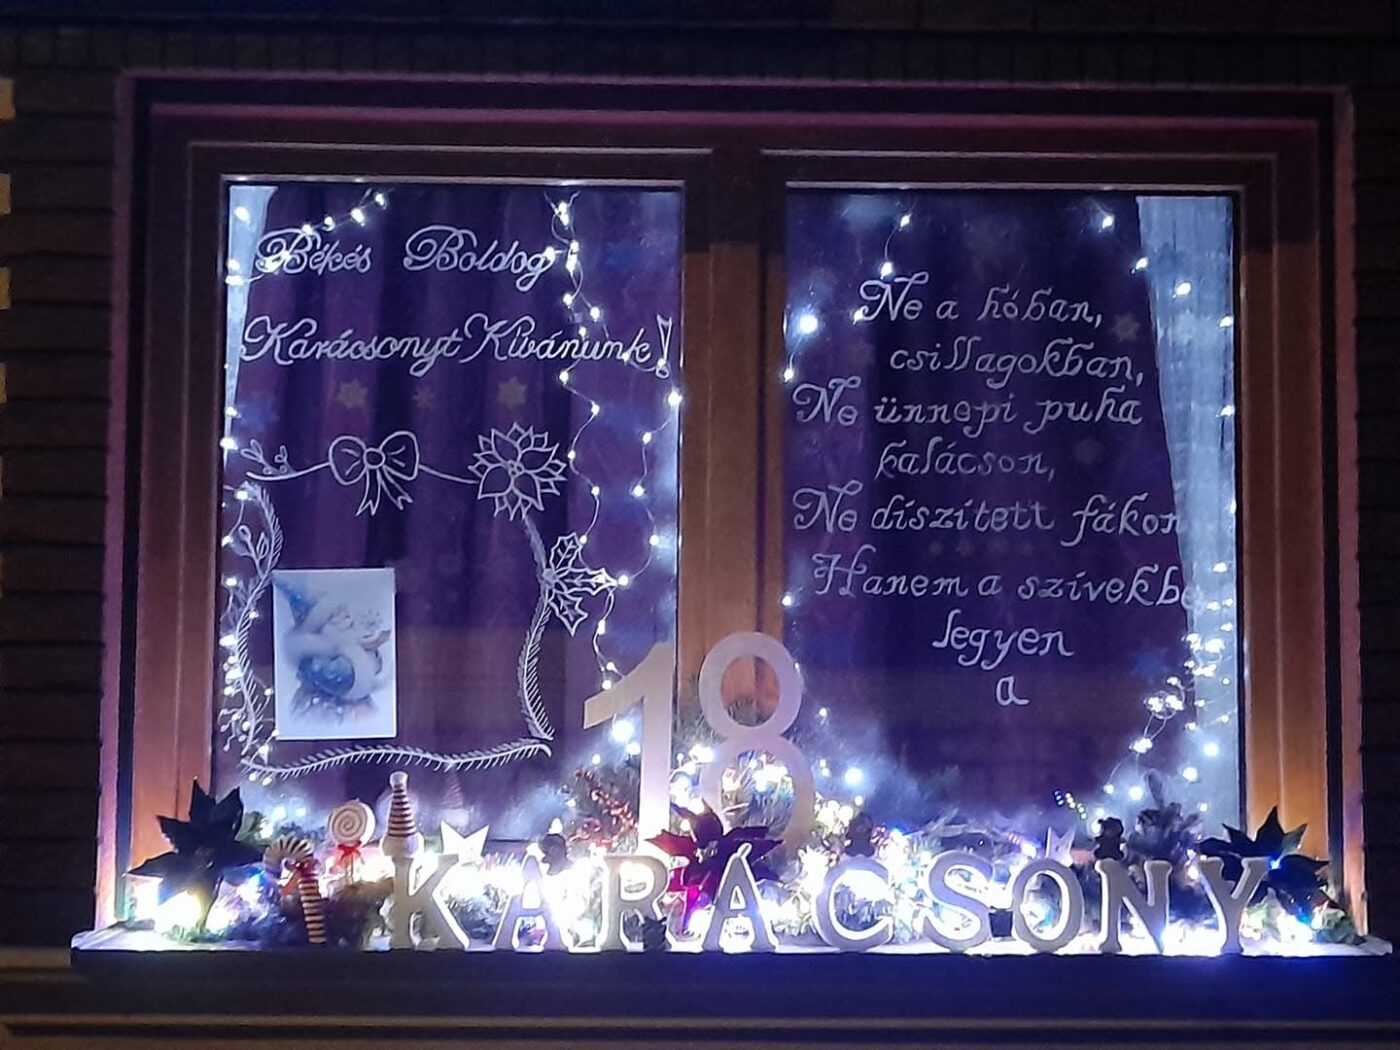 Békés Boldog
Karácsonyt Kívánunk!
Ne a hóban,
csillagokban,
Ne ünnepi puha
kalácson,
Ne díszített fákon
Hanem a szívekbe
legyen
a
18
KARÁCSONY